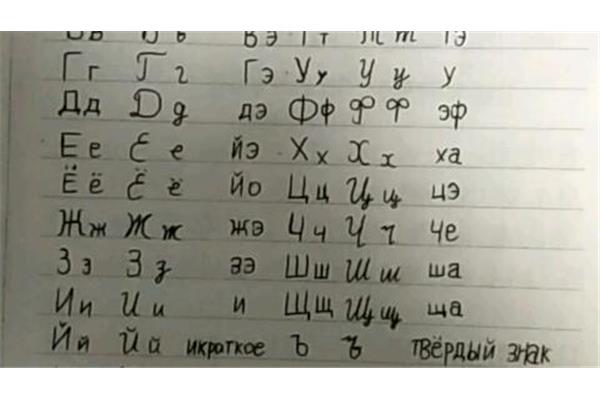 Вв Вв вэ Тт Тт тэ
Гг Гг гэ Уу Уу у
Дд Дд дэ Фф Фф эф
Ее Ее йэ Хх Хх ха
Ёё Ёё йо Цц Цц цэ
Жж Жж жэ Чч Чч че
Зз Зз зэ Шш Шш ша
Ии Ии и Щщ Щщ ща
Йй Йй икраткое Ъ ъ твёрдый знак